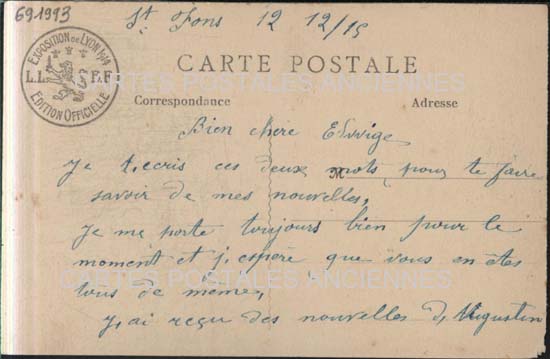 69.1993
St Fons 12 12/15
EXPOSITION DE LYON 1914
L.L. F&F
EDITION OFFICIELLE
CARTE POSTALE
CARTES POSTALES ANCIENNES
Correspondance Adresse
Bien chère Edwige
Je t,ecris ces deux mots, pour te faire
M
savoir de mes nouvelles,
Je me porte toujours bien pour le
moment et j,espère que vous en êtes
CARTES POSTALES ANCIENNES
tous de meme,
J,ai reçu des nouvelles d,Augustin